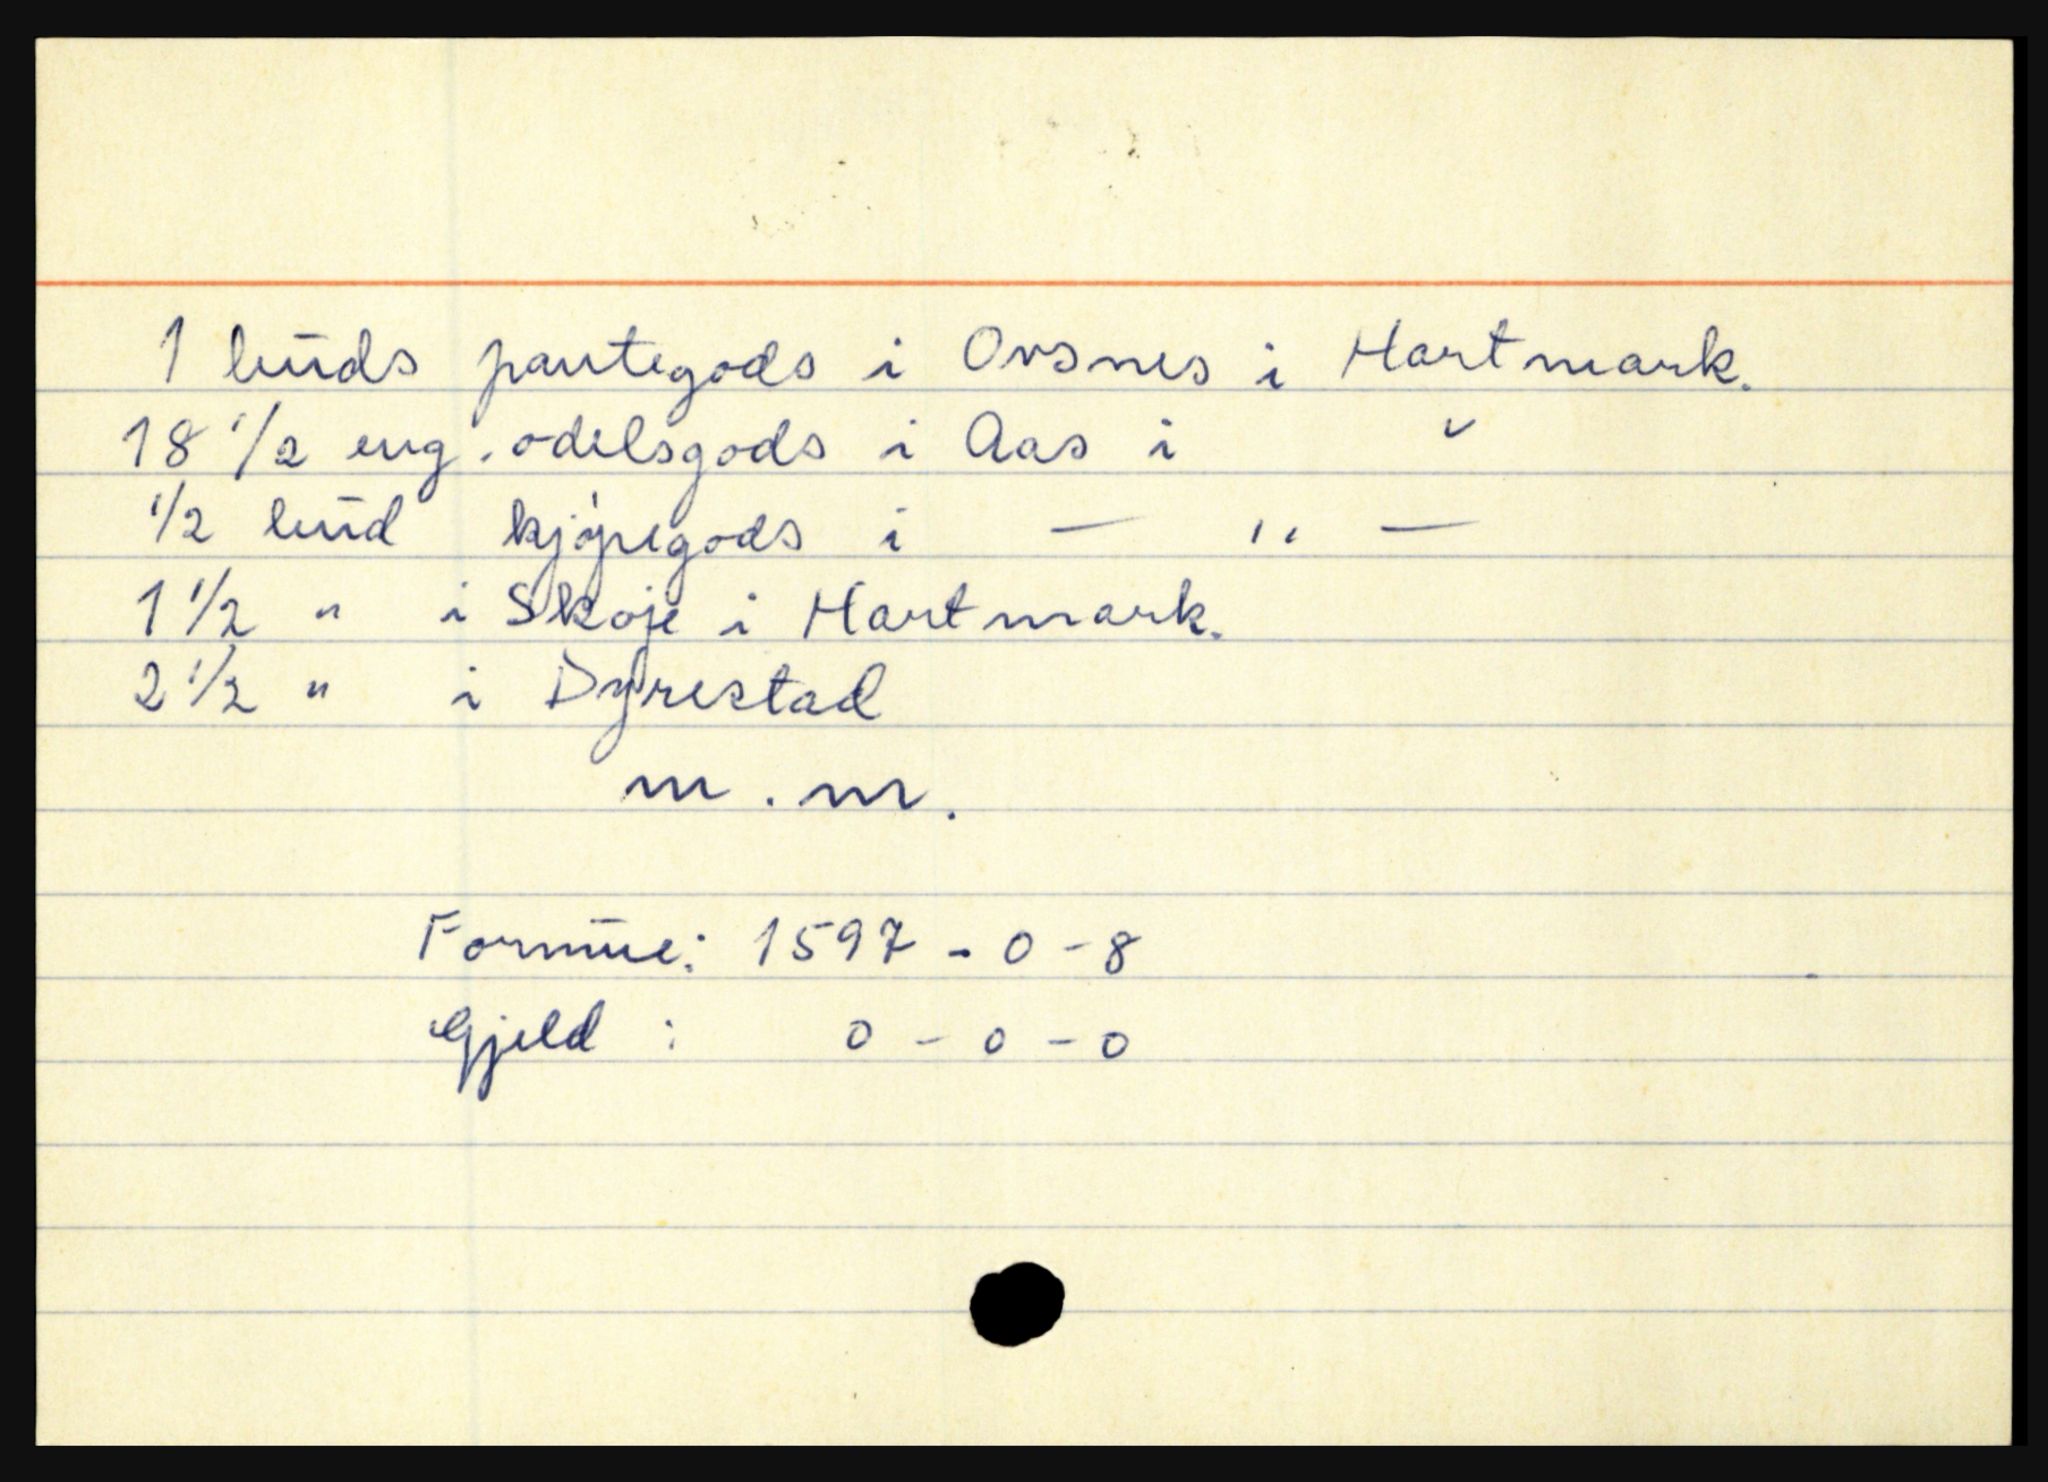 1 huds pantegods i Ovsnes i Hartmark.
18 1/2 eng. odelsgods i Aas i "
1/2 hud kjøpegods i — " —
1 1/2 " i Skoje i Hartmark.
2 1/2 " i Dyrestad
m. m.
Formue: 1597 - 0 - 8
Gjeld : 0 - 0 - 0